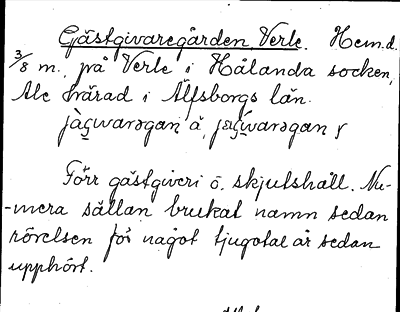 Gästgivaregården, Verle. Hem.d.
3/8 m. på Verle i Hålanda socken,
Ale härad i Älfsborgs län.
Förr gästgiveri o. skjutshåll. Nu-
-mera sällan brukat namn sedan
rörelsen för något tjugotal år sedan
upphört.